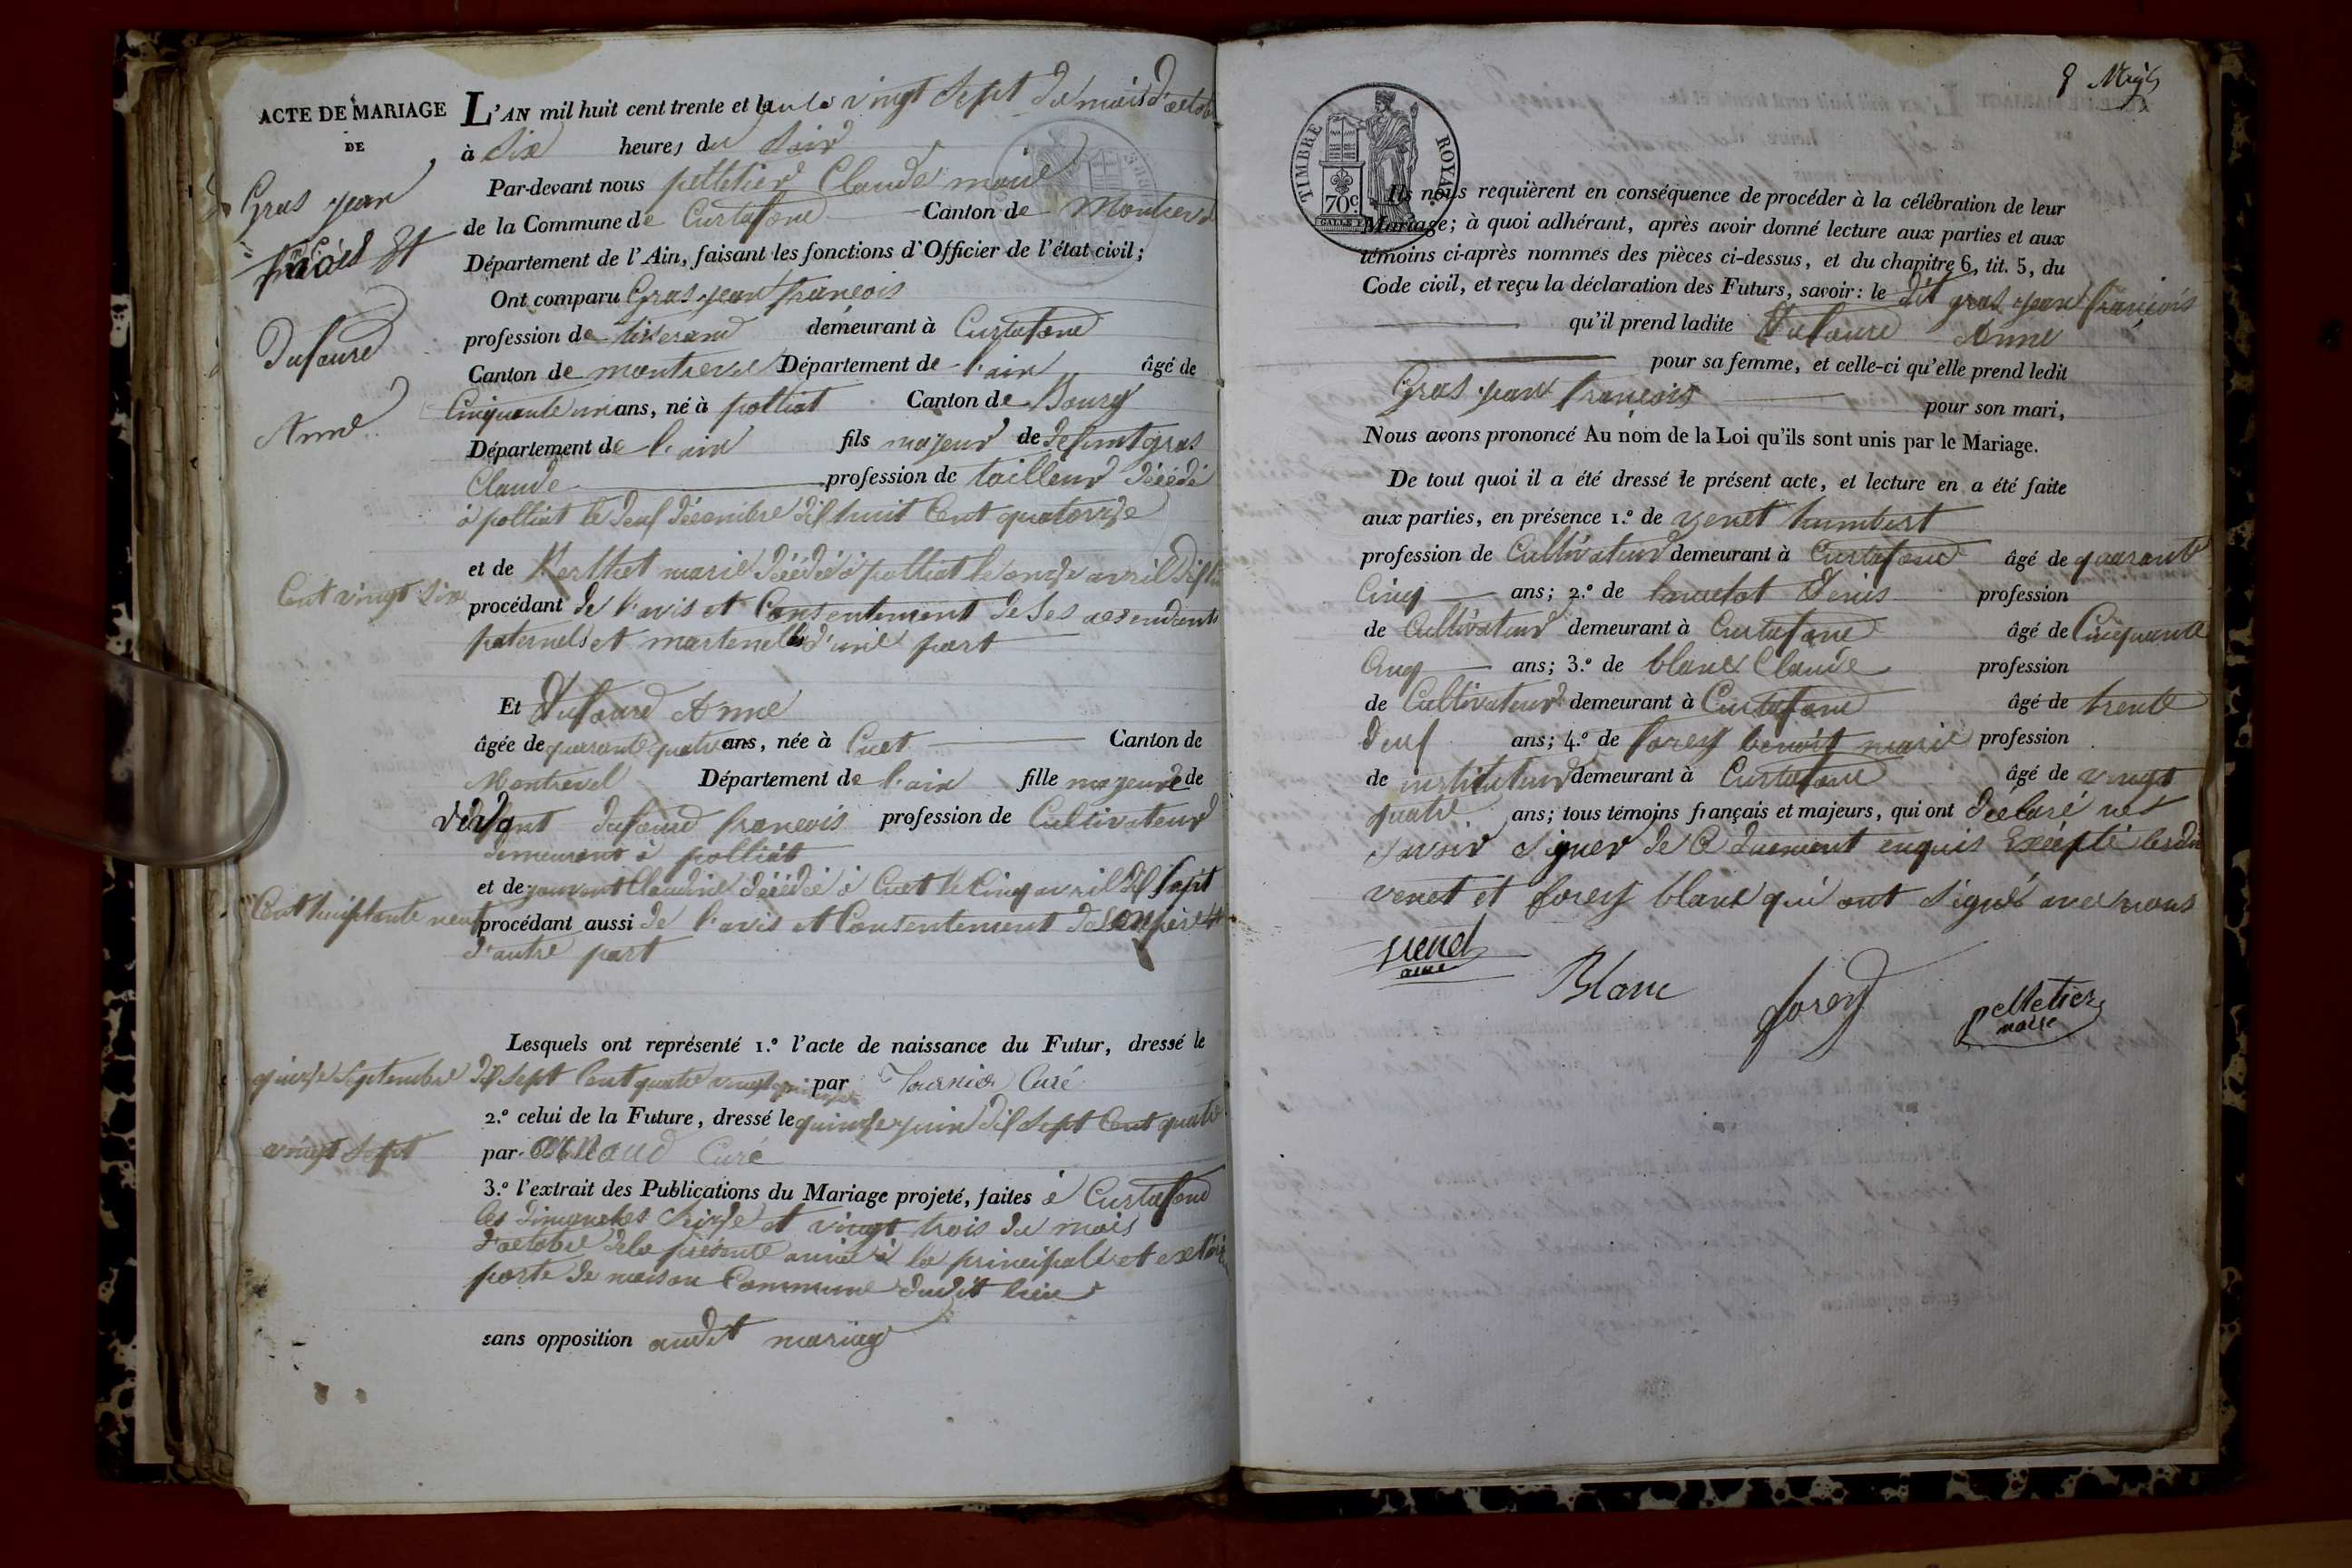 ACTE DE MARIAGE
DE
Gras jean
françois et
Dufour
Anne
L'AN mil huit cent trente et le vingt sept du mois d'octob
à six heures du soir
Par-devant nous pelletier Claude maire
de la Commune de Curtafond Canton de Montrevel
Département de l'Ain, faisant les fonctions d'Officier de l'état civil;
Ont comparu Gras jean françois
profession de tisserand demeurant à Curtafond
Canton de montrevel Département de l'ain âgé de
Cinquante un ans, né à polliat Canton de Bourg
Département de l'ain fils majeur de defunt gras
Claude profession de tailleur décédé
à polliat le neuf décembre dix huit Cent quatorze
et de marie décédée à polliat le onze avril dix huit
Cent vingt six
procédant de l'avis et Consentement de ses
paternels et maternels d'une part
Et Dufour Anne
âgée de quarante quatre ans, née à Cuet Canton de
Montrevel Département de l'ain fille majeure de
vivant dufour françois profession de Cultivateur
demeurant à polliat
et de Claudine décédée à Cuet le Cinq avril dix sept
Cent huiptante neuf procédant aussi de l'avis et Consentement de son père
d'autre part
Lesquels ont représenté 1.º l'acte de naissance du Futur, dressé le
quinze septembre dix sept Cent quatre vingt par Tournier Curé
2.º celui de la Future, dressé le quinze juin dix sept Cent quatre
vingt sept par Curé
3.º l'extrait des Publications du Mariage projeté, faites à Curtafond
les dimanches seize et vingt trois du mois
d'octobre de la présente année à la principale et extérie
porte de maison Commune dudit lieu
sans opposition audit mariage
TIMBRE ROYAL
70c
Ils nous requièrent en conséquence de procéder à la célébration de leur
Mariage; à quoi adhérant, après avoir donné lecture aux parties et aux
témoins ci-après nommés des pièces ci-dessus, et du chapitre 6, tit. 5, du
Code civil, et reçu la déclaration des Futurs, savoir: le dit gras jean françois
qu'il prend ladite Dufour Anne
pour sa femme, et celle-ci qu'elle prend ledit
Gras jean françois pour son mari,
Nous avons prononcé Au nom de la Loi qu'ils sont unis par le Mariage.
De tout quoi il a été dressé le présent acte, et lecture en a été faite
aux parties, en présence 1.º de venet humbert
profession de Cultivateur demeurant à Curtafond âgé de quarante
Cinq ans; 2.º de Denis profession
de Cultivateur demeurant à Curtafond âgé de Cinquante
Cinq ans; 3.º de blanc Claude profession
de Cultivateur demeurant à Curtafond âgé de trente
neuf ans; 4.º de forey benoit marie profession
de instituteur demeurant à Curtafond âgé de vingt
quatre ans; tous témoins français et majeurs, qui ont déclaré ne
savoir signer de Ce duement enquis Excepté lesdits
venet et forey blanc qui ont signé avec nous
venet
Blanc
forey
pelletier
maire